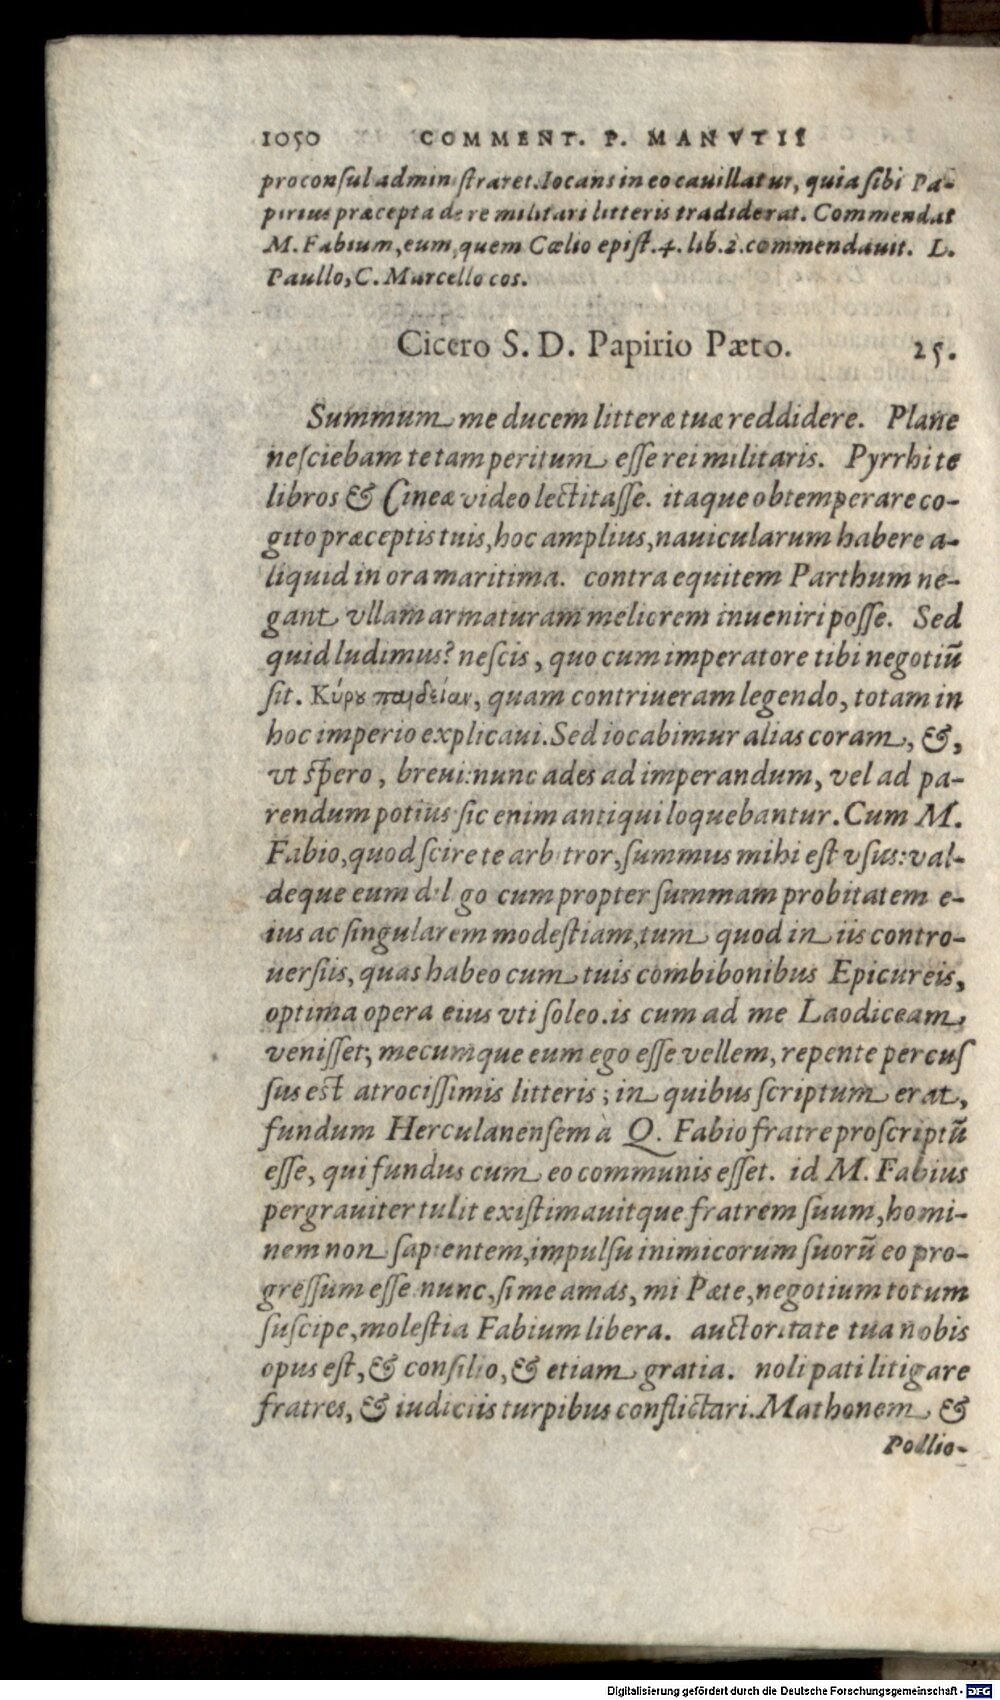 1050 COMMENT. P. MANVTII
proconsul administraret. Iocans in eo cauillatur, quia sibi Pa-
pirius præcepta de re militari litteris tradiderat. Commendat
M. Fabium, eum, quem Cœlio epist. 4. lib. 2. commendauit. L.
Paullo, C. Marcello cos.
Cicero S. D. Papirio Pæto. 25.
Summum me ducem litteræ tuæ reddidere. Plane
nesciebam te tam peritum esse rei militaris. Pyrrhi te
libros & Cineæ video lectitasse. itaque obtemperare co-
gito præceptis tuis, hoc amplius, nauicularum habere a-
liquid in ora maritima. contra equitem Parthum ne-
gant vllam armaturam meliorem inueniri posse. Sed
quid ludimus? nescis, quo cum imperatore tibi negotiũ
sit. Κύρου παιδείαν, quam contriueram legendo, totam in
hoc imperio explicaui. Sed iocabimur alias coram, &,
vt spero, breui: nunc ades ad imperandum, vel ad pa-
rendum potius sic enim antiqui loquebantur. Cum M.
Fabio, quod scire te arbitror, summus mihi est vsus: val-
deque eum diligo cum propter summam probitatem e-
ius ac singularem modestiam, tum quod in iis contro-
uersiis, quas habeo cum tuis combibonibus Epicureis,
optima opera eius vti soleo. is cum ad me Laodiceam,
venisset; mecumque eum ego esse vellem, repente percus
sus est atrocissimis litteris; in quibus scriptum erat,
fundum Herculanensem à Q. Fabio fratre proscriptũ
esse, qui fundus cum eo communis esset. id M. Fabius
pergrauiter tulit existimauitque fratrem suum, homi-
nem non sapientem, impulsu inimicorum suorũ eo pro-
gressum esse. nunc, si me amas, mi Pæte, negotium totum
suscipe, molestia Fabium libera. auctoritate tua nobis
opus est, & consilio, & etiam gratia. noli pati litigare
fratres, & iudiciis turpibus conflictari. Mathonem &
Pollio-
Digitalisierung gefördert durch die Deutsche Forschungsgemeinschaft - DFG